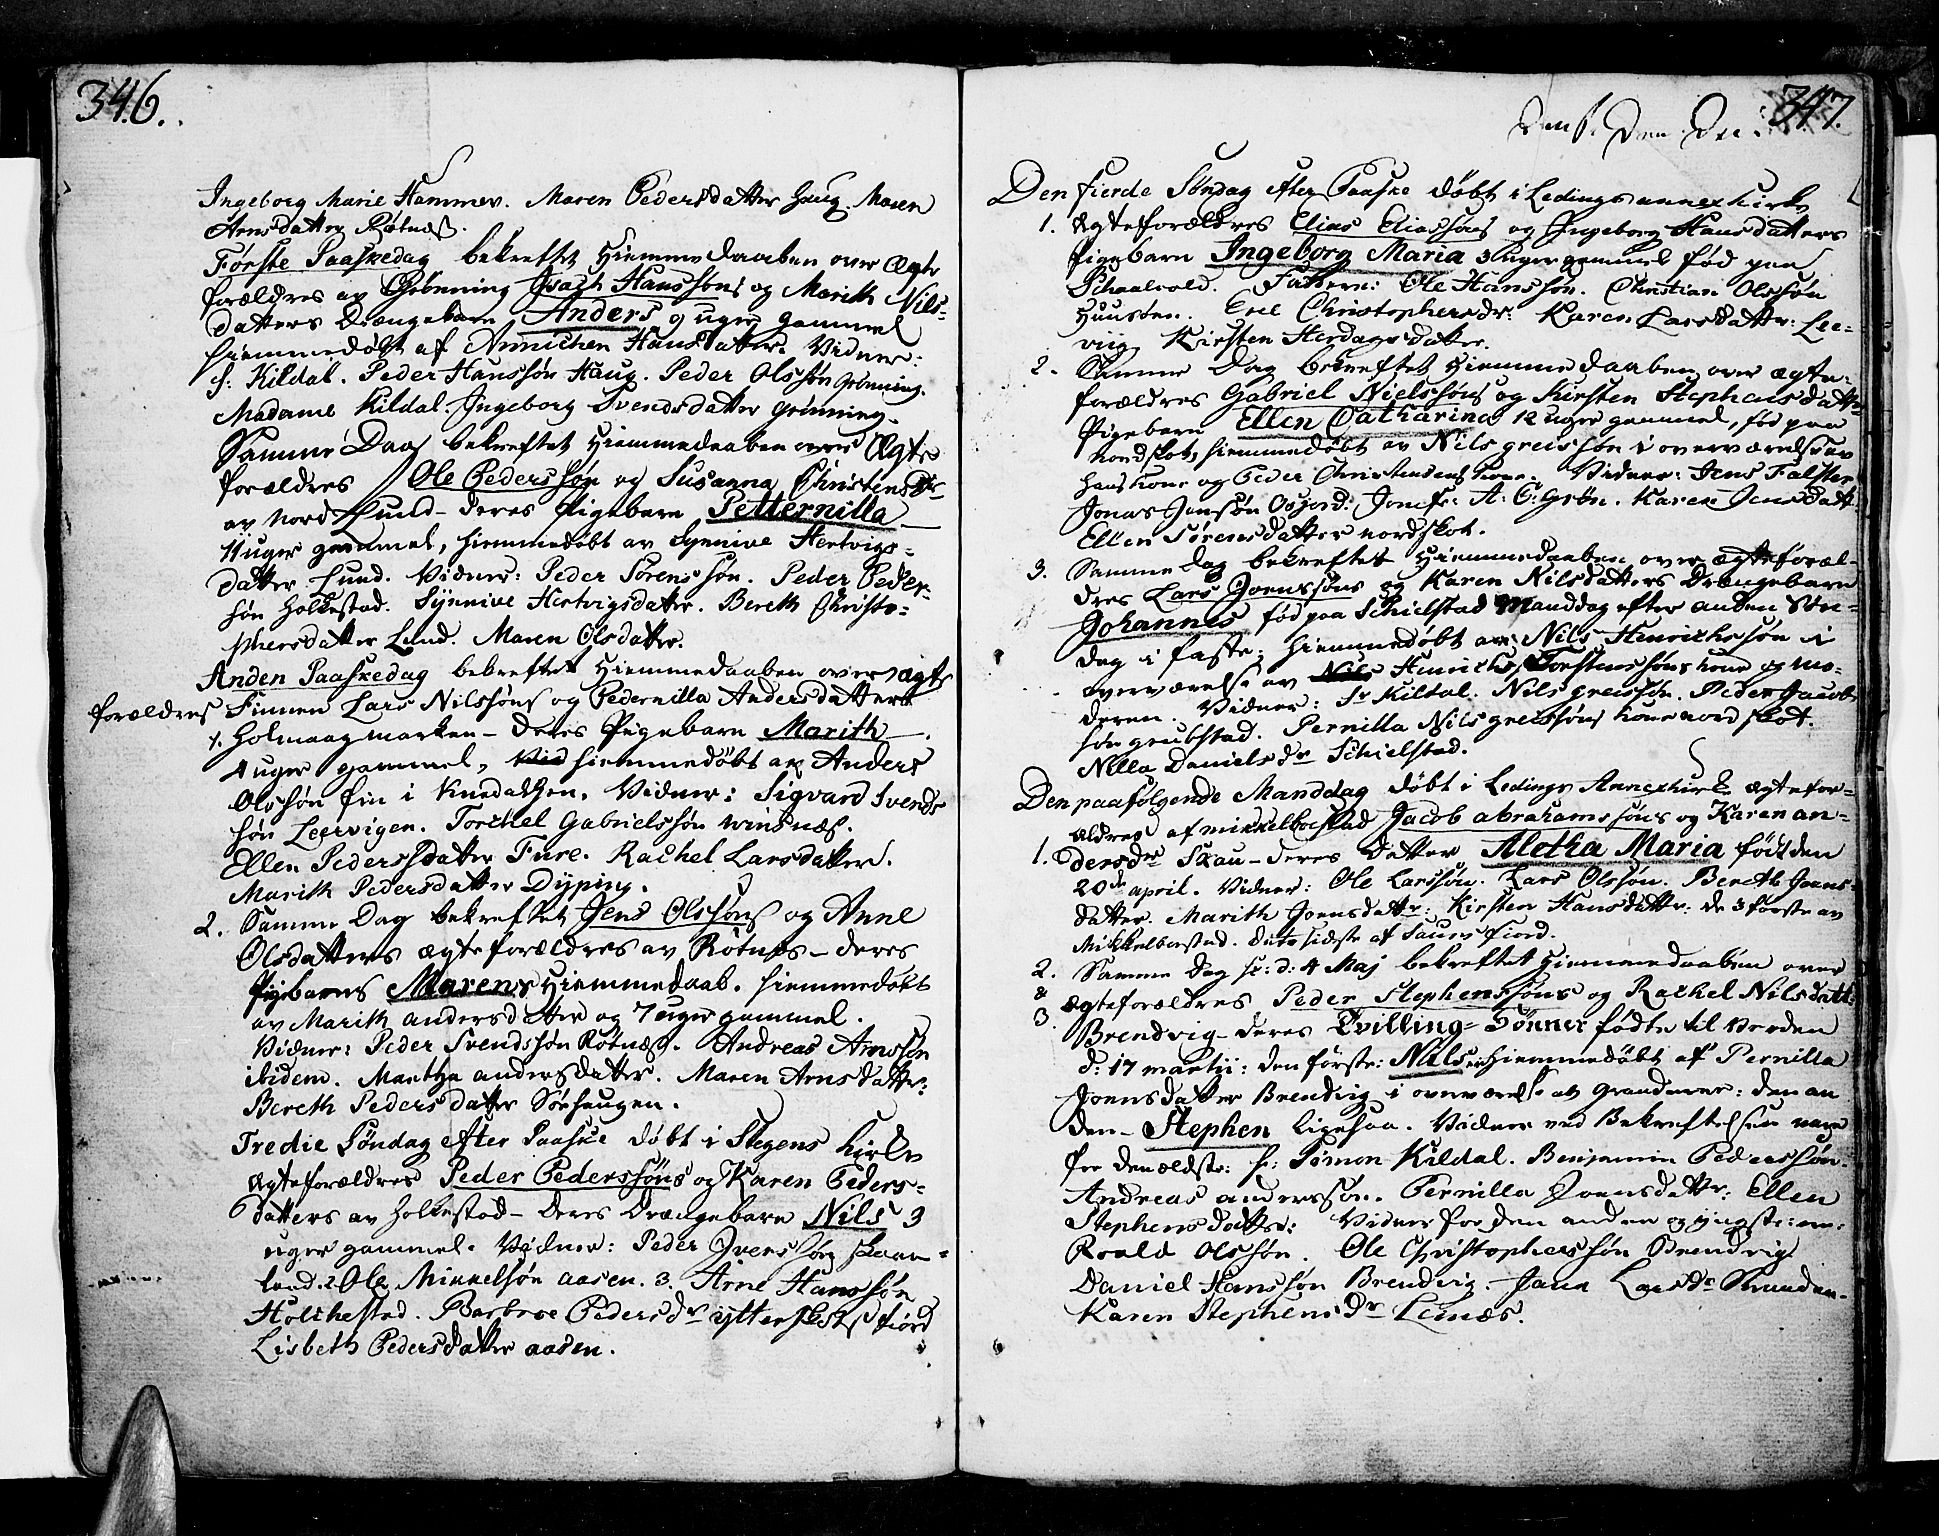 346.
Ingeborg Marie Hammer. Maren Pedersdatter Haug. Maren
Arnsdatter Røtnæs.
Første Paaskedag bekreftet Hiemmedaaben over Ægte
forældres av Grønning Isach Hanssøns og Marith Nils-
datters Drængebarn Anders 9 uger gammel
hiemmedøbt af Annichen Hansdatter. Vidner:
H: Kildal. Peder Hanssøn Haug. Peder Olssøn Grønning.
Madame Kildal. Ingeborg Svendsdatter Grønning.
Samme Dag bekreftet Hiemmedaaben over Ægte
forældres Ole Pederssøn og Susanna Christensdr
av Nord Lund - deres Pigebarn Petternilla
11 uger gammel, hiemmedøbt av Synnive Hertvigs-
datter Lund. Vidner: Peder Sørenssøn. Peder Peder-
søn Holkestad. Synnive Hertvigsdatter. Bereth Christo-
phersdatter Lund. Maren Olsdatter.
Anden Paaskedag bekreftet Hiemmedaaben over ægte
forældres Finnen Lars Nilssøns og Pedernilla Andersdatters
1. Holmaagmarken - deres Pigebarn Marith
4 uger gammel, hiemmedøbt av Anders
Olssøn fin i Vidner: Sigvard Svends
søn Leervigen. Torchel Gabrielssøn Winsnæs.
Ellen Pederssdatter Fure. Rachel Larsdatter.
Marith Pedersdatter Dyping.
2. Samme Dag bekreftet Jens Olssøns og Anne
Olsdatters ægteforældres av Røtnæs - deres
Pigebarns Marens Hiemmedaab. hiemmedøbt
av Marith Andersdatter og 7 uger gammel.
Vidner: Peder Svendssøn Røtnæs. Andreas Arnssøn
ibidem. Martha Andersdatter. Maren Arnsdatter:
Bereth Pedersdatter Sørhaugen.
Tredie Søndag efter Paaske døbt i Stegens Kirke
Ægteforældres Peder Pederssøns og Karen Peders-
datters av Holkestad - deres Drængebarn Nils 3
uger gammel. Vidner: Peder Iverssøn Skaan-
land. 2 Ole Mikkelsøn Aasen. 3. Arne Hanssøn
Holchestad. Barbroe Pedersdr ytter fiord
Lisbeth Pedersdatter Aasen.
347.
Den fierde Søndag efter Paaske døbt i Ledings annexkirke
1. Ægteforældres Elias Eliassøns og Ingeborg Hansdatters
Pigebarn Ingeborg Maria 3 uger gammel fød paa
Schaalvold. Faddere: Ole Hanssøn. Christian Olssøn
Huusøen. Christophersdr: Karen Larsdatter: Lee-
viig. Kirsten Herdagsdatter.
2. Samme Dag bekreftet Hiemmedaaben over ægte-
forældres Gabriel Nielssøns og Kirsten Stephensdatters
Pigebarn Ellen Catharina 12 uger gammel, fød paa
Nordskot, hiemmedøbt av Nils Greissøn i overværelse av
hans kone og Peder Christensens kone. Vidner: Jens Falster
Jonas Jenssøn Jomfr: A: C: Grøn. Karen Jensdatt
Ellen Sørensdatter Nordskot.
3. Samme Dag bekreftet Hiemmedaaben over ægteforæl-
dres Lars Joenssøns og Karen Nilsdatters Drængebarn
Johannes fød paa Schielstad Manddag efter anden Søn-
dag i faste; hiemmedøbt av Nils Henrichssøn i
overværelse av Henrichs Torstenssøns kone og mo-
deren. Vidner: Sr Kildal. Nils Greissøn. Peder Jacob
søn Grubstad. Pernilla Nils Greissøns kone Nordskot.
Nilla Danielsdr Schielstad.
Den paafølgende Manddag døbt i Ledings Annexkirke ægtefor-
ældres af Mikkelborstad Jacob Abrahamssøns og Karen An-
1. dersdr Skau - deres datter Aletha Maria født den
20de april. Vidner: Ole Larssøn. Lars Olssøn. Bereth Joens-
datter. Marith Joensdatter: Kirsten Hansdatter: de 3 første av
Mikkelborstad. sidste af Saursfiord.
2. Samme Dag d: 4 Maj bekreftet Hiemmedaaben over
& Ægteforældres Peder Stephenssøns og Rachel Nilsdatt:
3. Brendvig - deres Tvilling-Sønner fødte til Verden
d: 17 martii: den første: Nils hiemmedøbt af Pernilla
Joensdatter Brendvig i overværelse av Grandener: den an
den - Stephen ligesaa. Vidner ved Bekreftelsen vare
for den ældste: H: Simon Kildal. Benjamin Pederssøn.
Andreas Anderssøn. Pernilla Joensdatter: Ellen
Stephensdatter: Vidner for den anden og yngste:
Roald Olssøn. Ole Christopherssøn Brendvig
Daniel Hanssøn Brendvig. Jana Larsdr
Karen Stephensdr Leinæs.